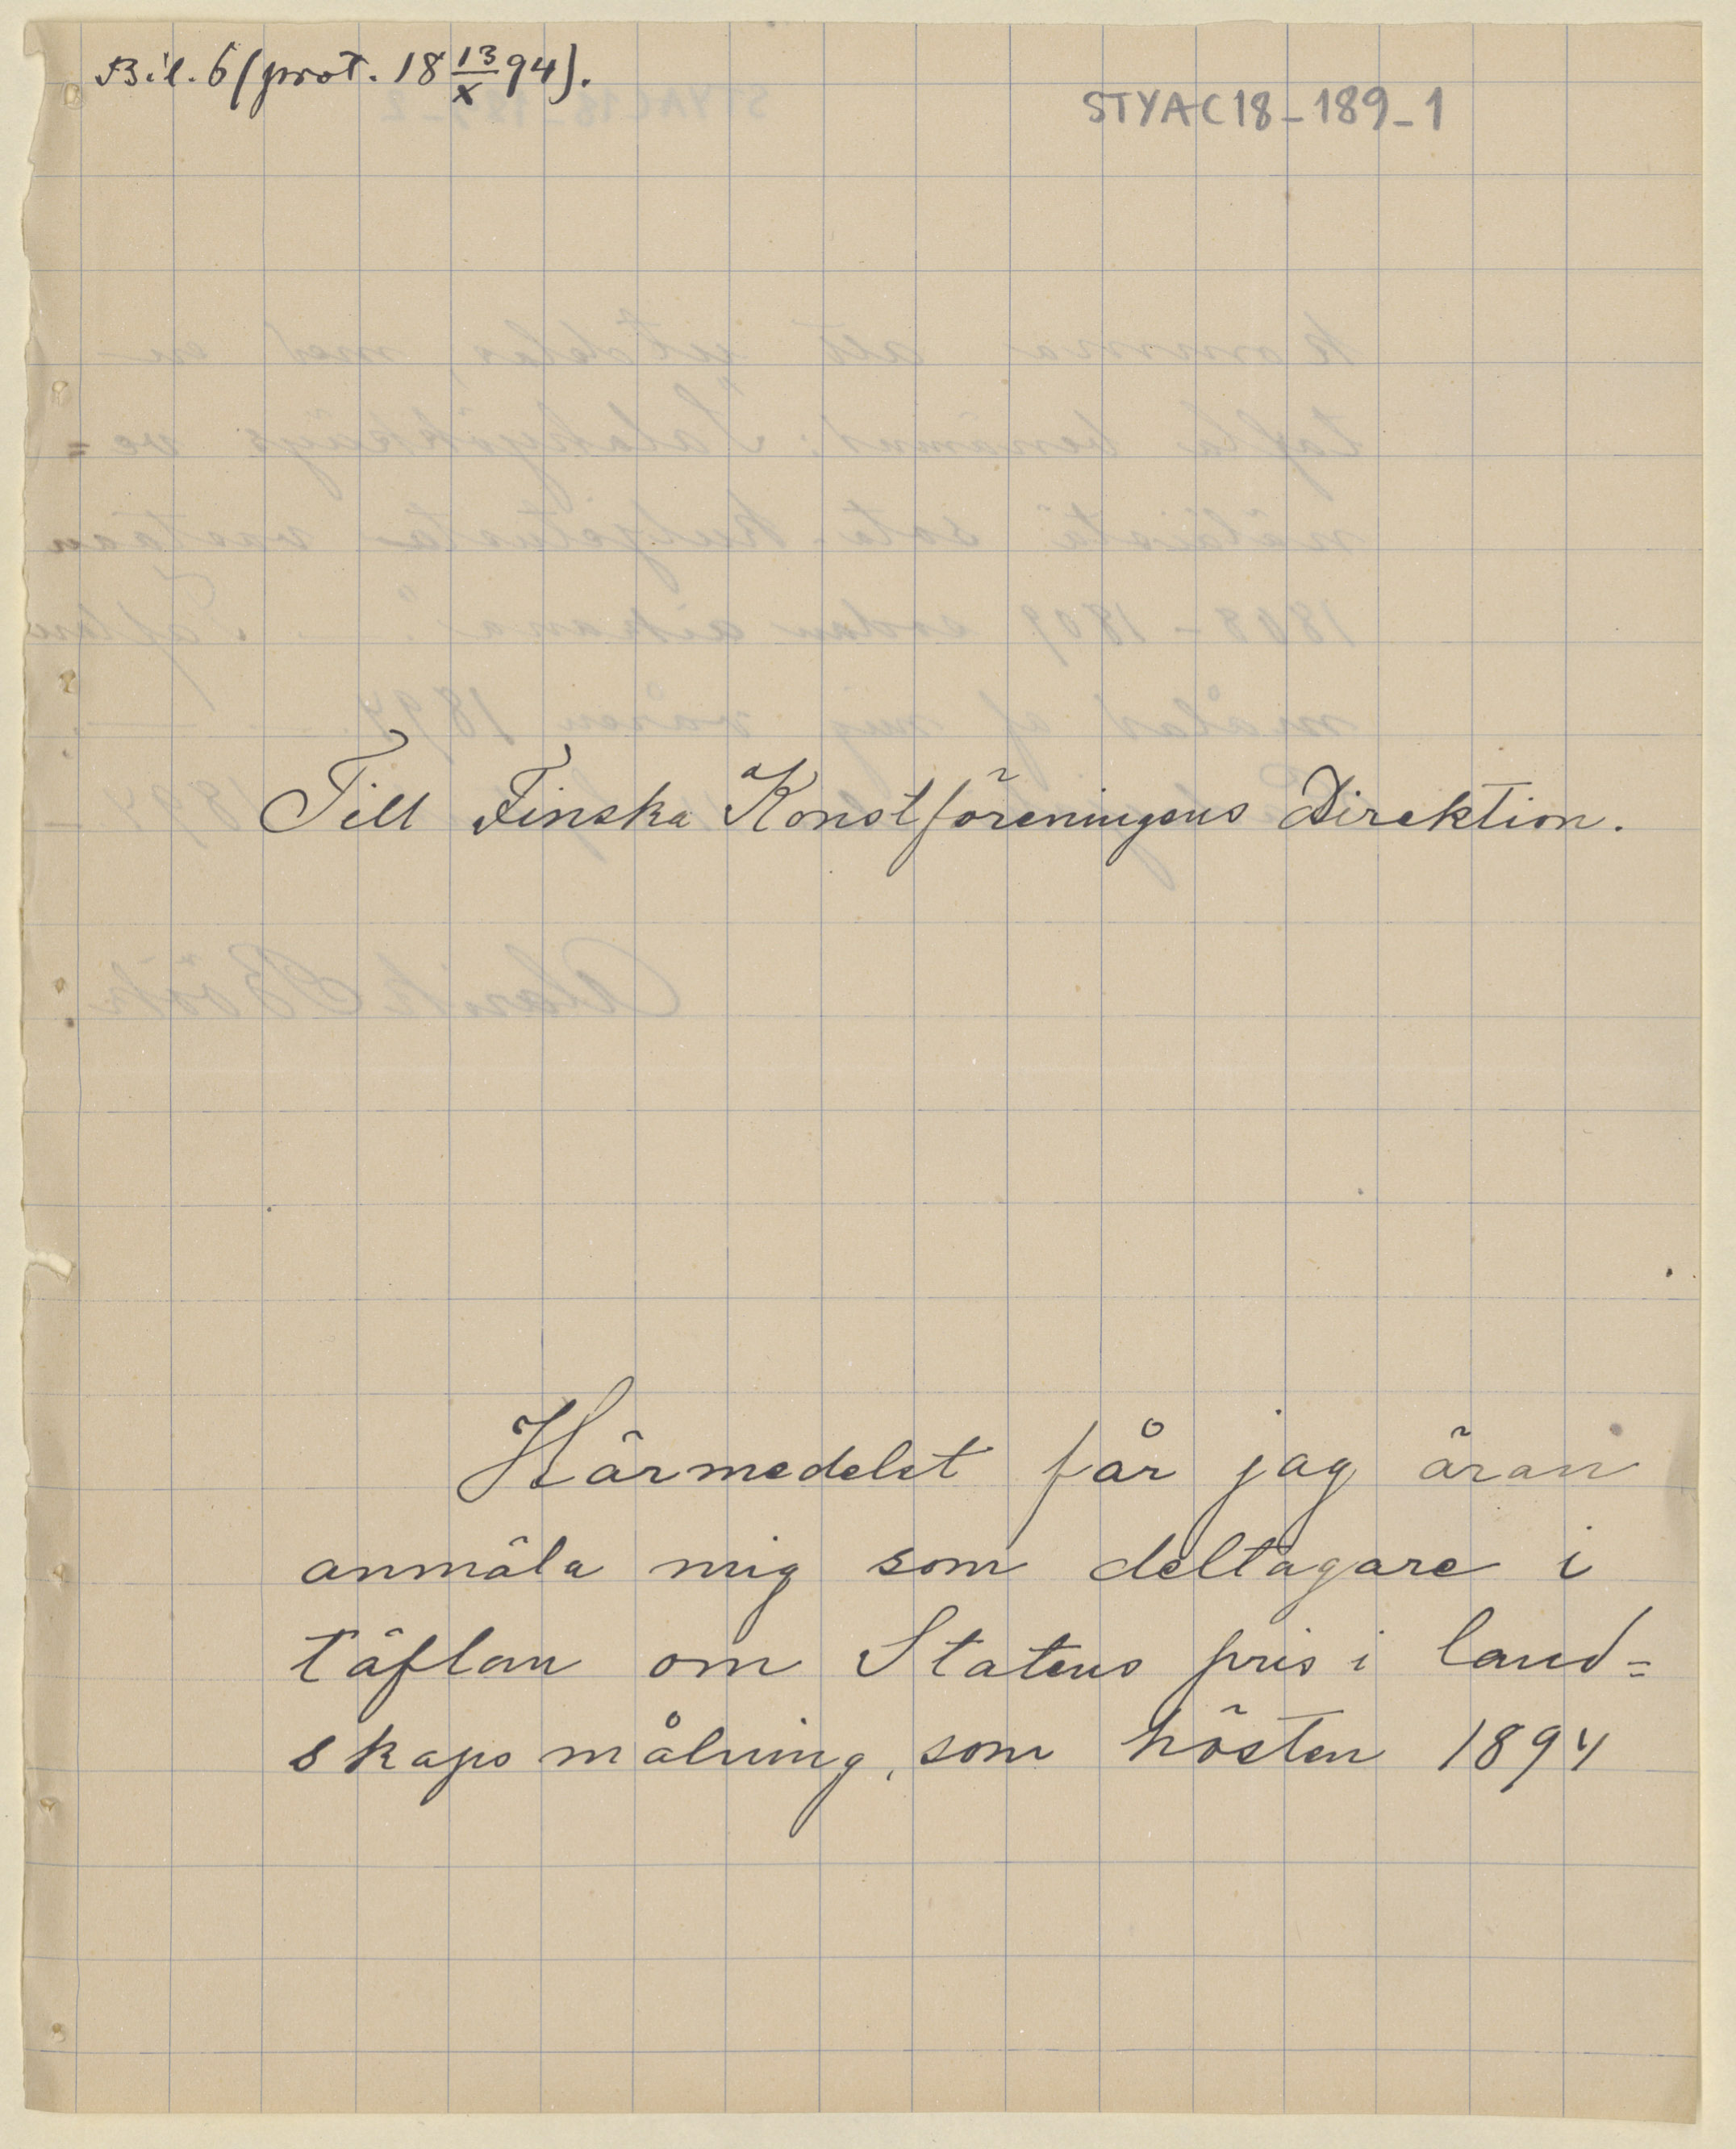 Bil. 6 (prot. 18 13/X 94).
STYAC18_189_1
Till Finska Konstföreningens Direktion.
Härmedelst får jag äran
anmäla mig som deltagare i
täflan om Statens pris i land=
skapsmålning, som hösten 1894